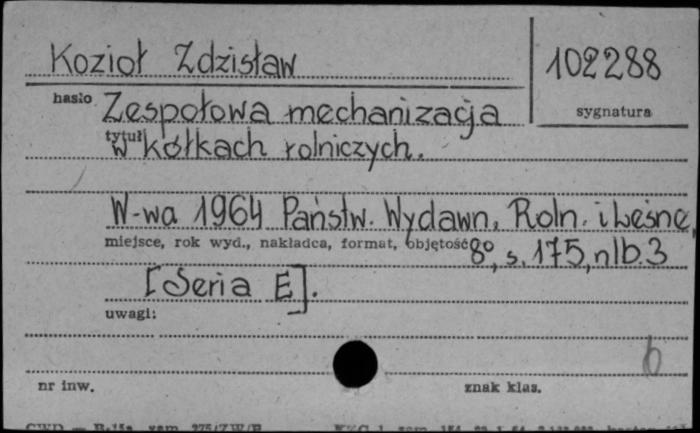 Kozioł Zdzisław
102288
hasło
sygnatura
Zespołowa mechanizacja
tytuł
w kółkach rolniczych.
W-wa 1964 Państw. Wydawn. Roln. i Leśne,
miejsce, rok wyd., nakładca, format, objętość
8°, s. 175, nlb. 3
[Seria E].
uwagi:
b
nr inw.
znak klas.